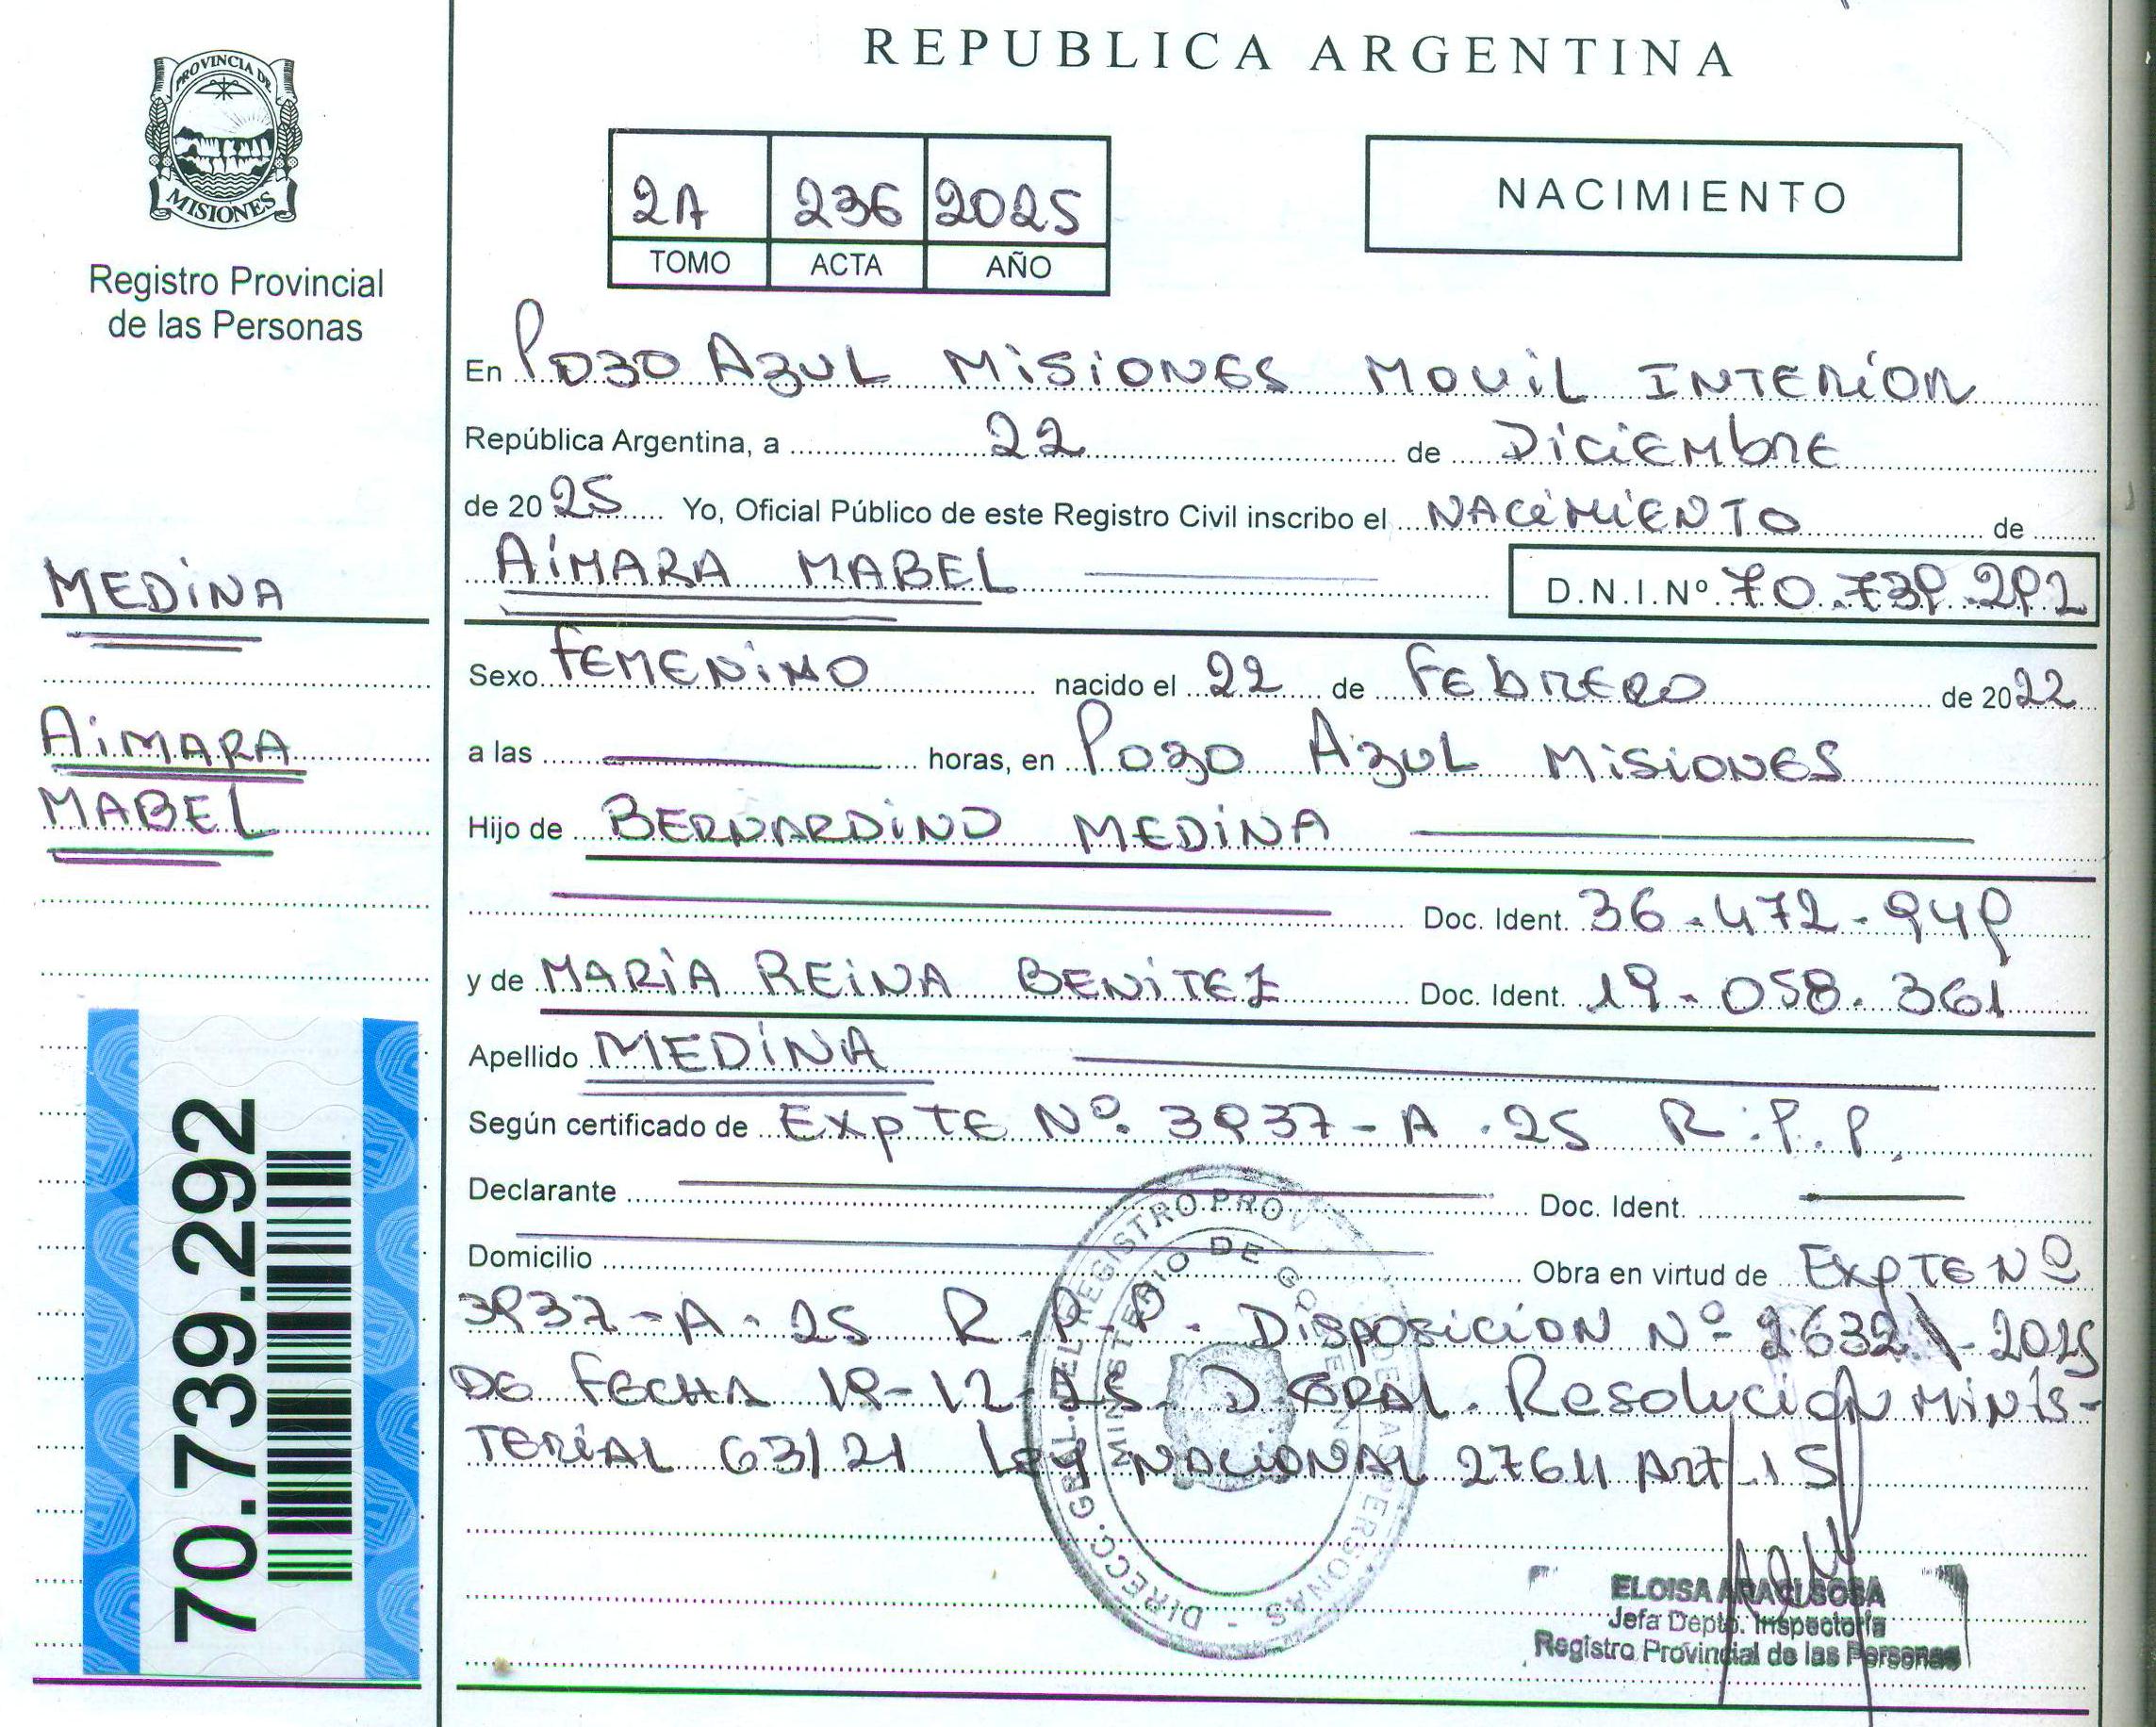 REPUBLICA ARGENTINA
PROVINCIA DE
MISIONES
Registro Provincial
de las Personas
2A 236 2025
TOMO ACTA AÑO
NACIMIENTO
En POZO AZUL MISIONES MOVIL INTERIOR
República Argentina, a 22 de DICIEMBRE
de 2025 Yo, Oficial Público de este Registro Civil inscribo el NACIMIENTO de
AIMARA MABEL D.N.I.Nº 70.739.292
MEDINA
AIMARA
MABEL
Sexo FEMENINO nacido el 22 de FEBRERO de 2022
a las horas, en POZO AZUL MISIONES
Hijo de BERNARDINO MEDINA
Doc. Ident. 36-472-949
y de MARIA REINA BENITEZ Doc. Ident. 19-058.361
Apellido MEDINA
Según certificado de EXPTE Nº 3937-A-25 R.P.P.
Declarante Doc. Ident.
Domicilio Obra en virtud de EXPTE Nº
3937-A-25 R.P.P. DISPOSICION Nº 2632 \-2025
DE FECHA 19-12-25 D GRAL. RESOLUCION MINIS-
TERIAL 63/21 LEY NACIONAL 27611 Art 15
70.739.292
DIRECC. GRAL. DEL REGISTRO PROV DE LAS PERSONAS
MINISTERIO DE GOBIERNO
ELOISA ARACI SOSA
Jefa Depto. Inspectoría
Registro Provincial de las Personas